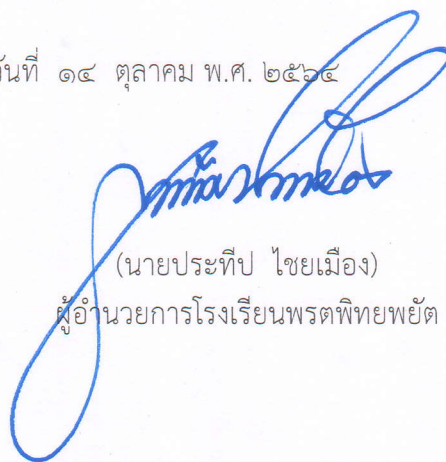 วันที่ ๑๔ ตุลาคม พ.ศ. ๒๕๖๔
(นายประทีป ไชยเมือง)
ผู้อำนวยการโรงเรียนพรตพิทยพยัต